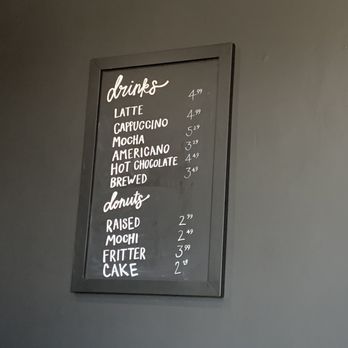 drinks
LATTE 4.99
CAPPUCCINO 4.99
MOCHA 5.29
AMERICANO 3.29
HOT CHOCOLATE 4.49
BREWED 3.49
donuts
RAISED 2.99
MOCHI 2.49
FRITTER 3.99
CAKE